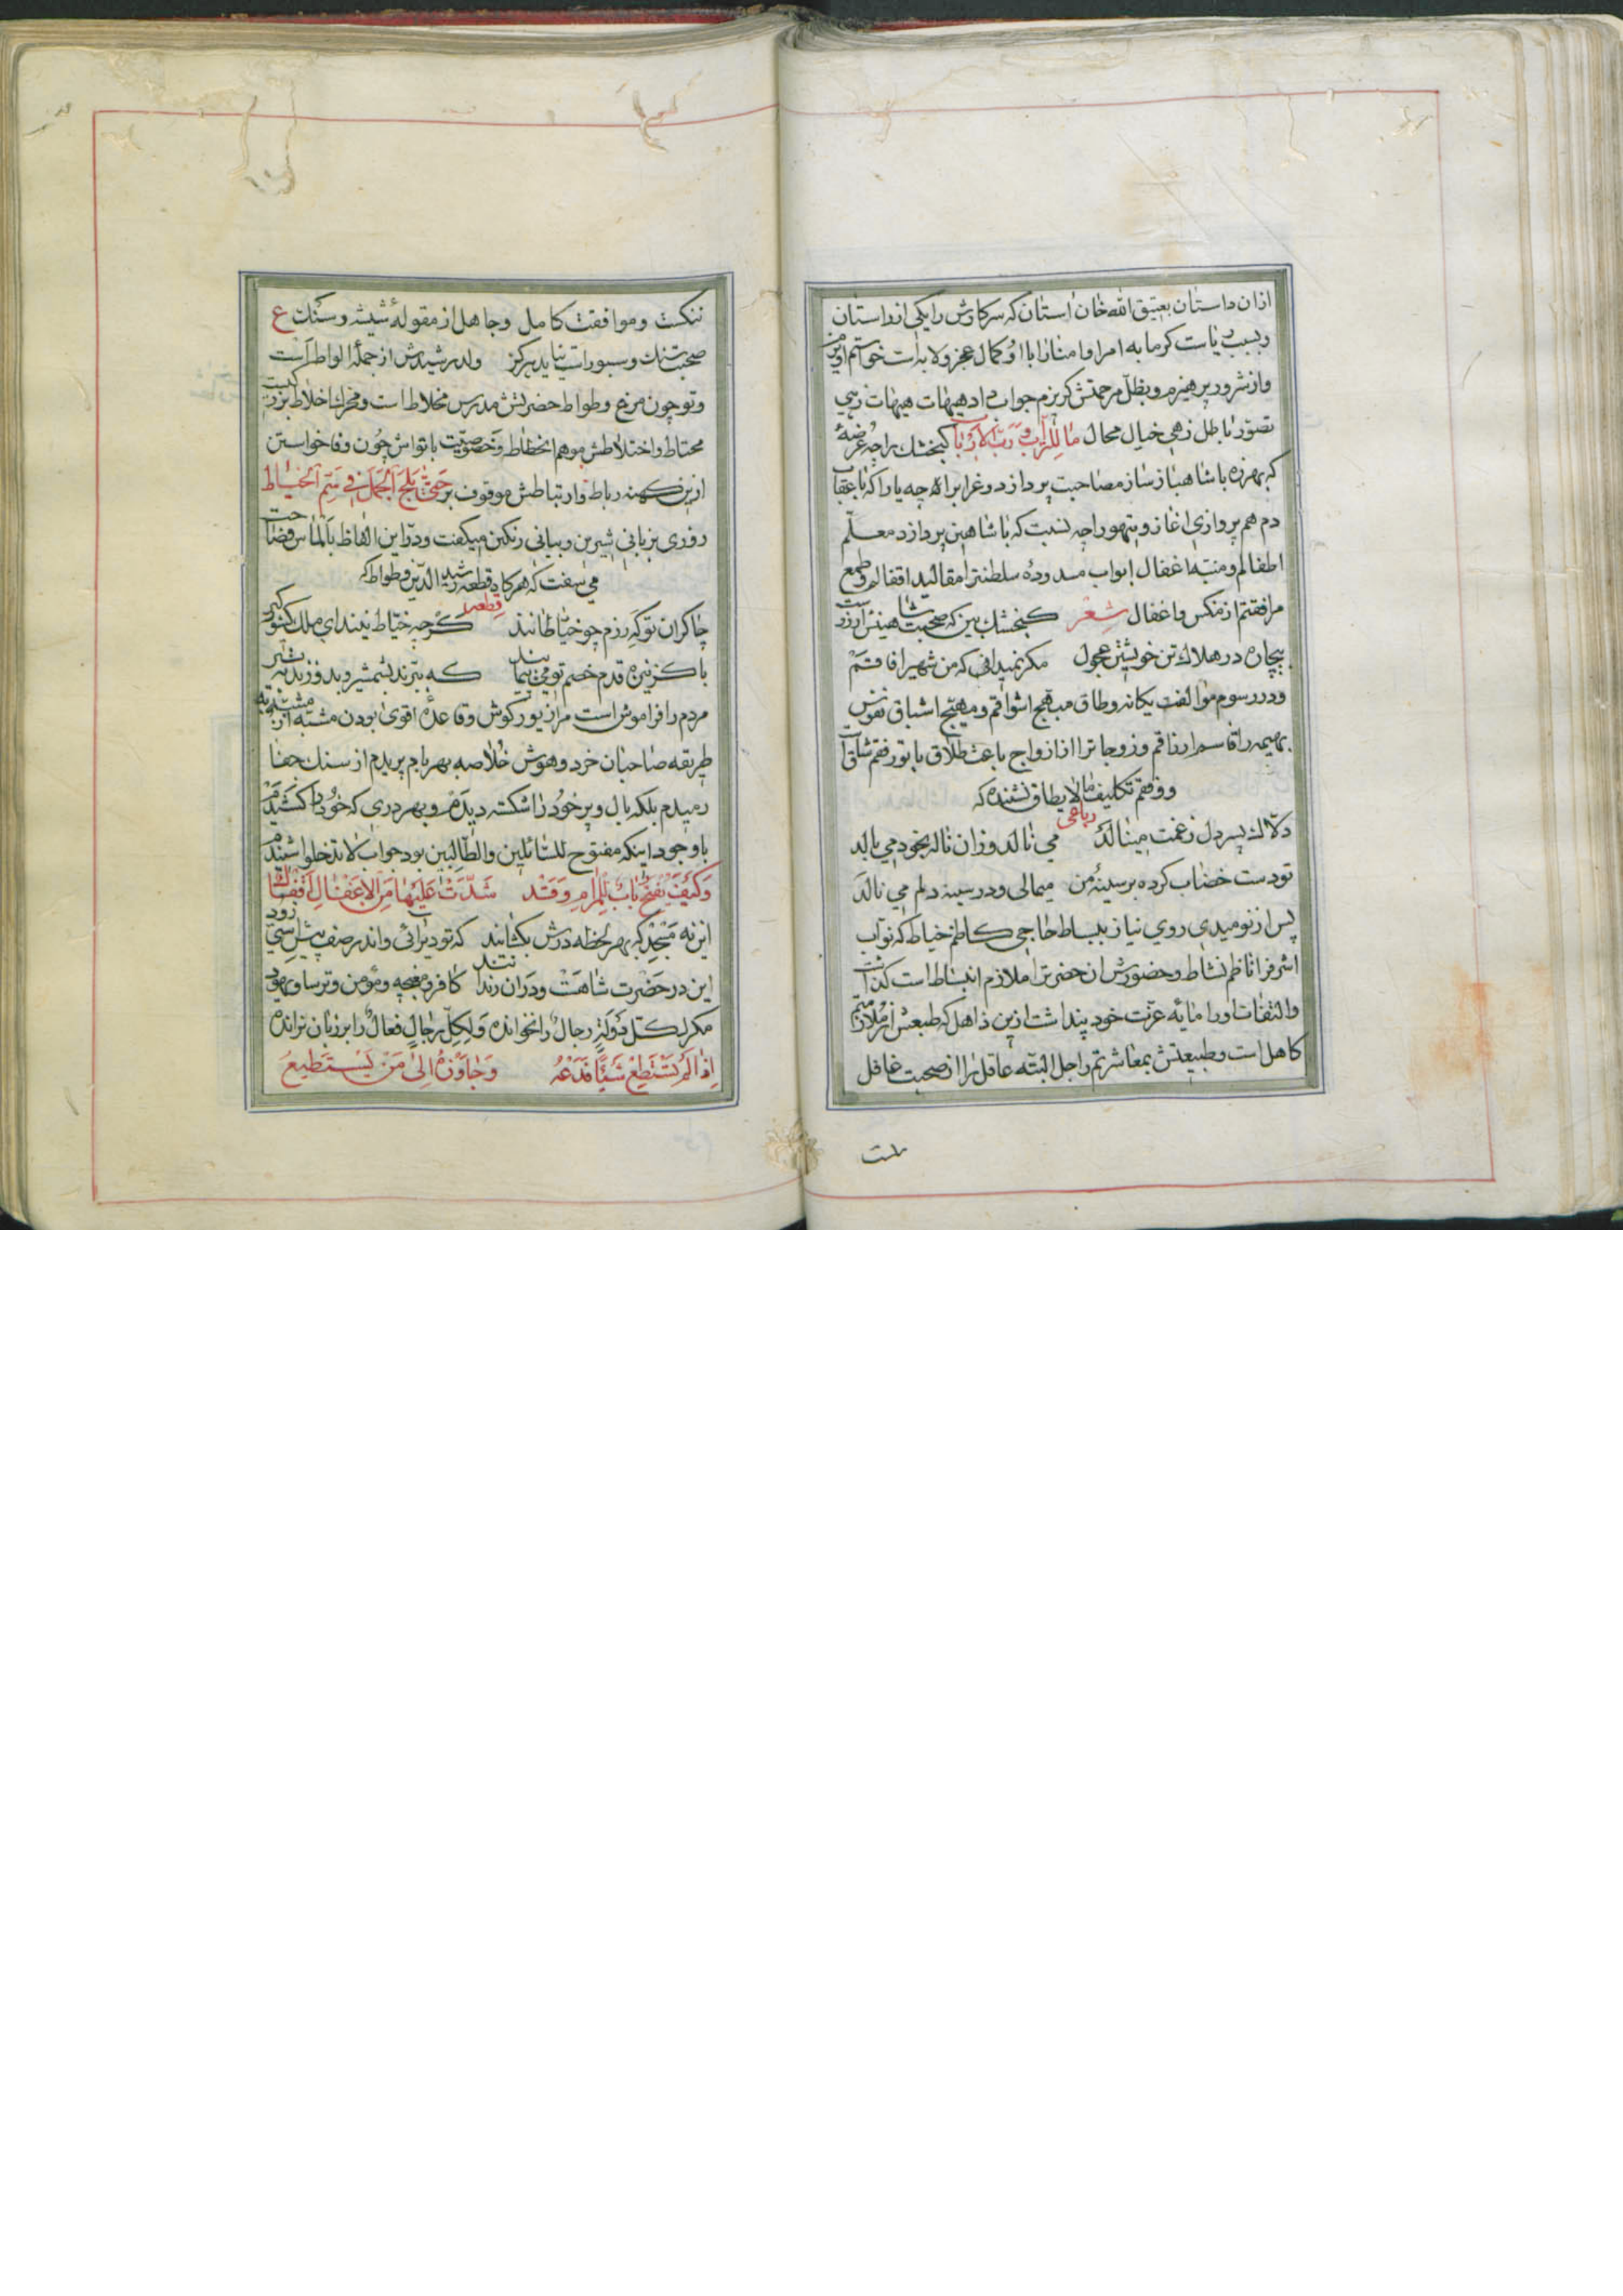 ازان داستان بعتیق الله خان استان که سرکارش را یکی ازو استان
وبسبب ریاست کرمابه امرا وامنا را با او کمال عجز ولابه است خواستم
واز شرور بپرهیزم وبظل مرحمتش کریزم جواب داد هیهات هیهات زهی
تصور باطل زهی خیال محال ما للتراب ورب الارباب کنجشک را چه عرضهٔ
که بهرزه با شاهباز ساز مصاحبت پردازد وغراب را چه یارا که با عقاب
دم هم پروازی اغازد وتیهو را چه نسبت که با شاهین پردازد معلم
اطفالم ومنبه اغفال ابواب مسدودهٔ سلطنترا مقالید اقفالم وطمع
مرافقتم از مکس واغفال شعر کنجشک بین که صحبت شاهینش ارزوست
بیچاره در هلاک تن خویشتن عجول مکر نمیدانی که من شهیر افاقم
ودر رسوم موالفت یکانه وطاق مبهج اشواقم ومهیج اشباق نفوس
بهیمه را قاسم ارزاقم وزوجاترا از ازواج باعث طلاق با تو رفقم شاق است
ووفقم تکلیف ما لا یطاق نشنیده که
رباعی
دلاک پسر دل زغمت مینالد می نالد وزان ناله بخود می بالد
تو دست خضاب کرده بر سینهٔ من میمالی ودر سینه دلم می نالد
پس از نومیدی روی نیاز ببساط حاجی کاظم خیاط که نواب
اشرف را ناظم نشاط وحضورش ان حضرترا ملازم انبساط است کذاشت
والتفات اورا مایه عزت خود پنداشت ازین ذاهل که طبعش از ملازمتم
کاهل است وطبیعتش بمعاشرتم راجل البته عاقل را از صحبت غافل
ننکست وموافقت کامل وجاهل از مقولهٔ شیشه وسنکت ع
صحبت سنک وسبو راست نیاید هرکز ولد رشیدش از جملهٔ الواط است
وتو چون مرغ وطواط حضرتش مدرس مخلاط است ومخرب اخلاط
محتاط واختلاطش موهم انحطاط وخصوصیت با تواش چون وفا خواستن
ازین کهنه رباط وارتباطش موقوف بر حتی یلج الجمل فی سم الخیاط
روزی بزبانی شیرین وبیانی رنکین میکفت ودر این الفاظ بالماس فصاحت
می سفت که هر کاه قطعه رشید الدین وطواط که
قطعه
چاکران تو که رزم چو خیاطانند کرچه خیاط نیند ای ملک کشور کیر
با کز نیزه قدم خصم تو می پیمایند که ببرند بشمشیر وبدوزند به تیر
مردم را فراموش است مرا زیور کوش وقاعده اقوی بودن مشبه به از مشبه
طریقه صاحبان خرد وهوش خلاصه بهر بام پریدم از سنک جفا
رمیدم بلکه بال وپر خود را شکسته دیدم وبهر دری که خود را کشیدم
با وجود اینکه مفتوح للسائلین والطالبین بود جواب لا تدخلوا شنیدم
وکیف یفتح باب للمرام وقد شدت علیها من الاغفال اقفال
این نه مسجد که بهر لحظه درش بکشایند که تو دیر ائی واندر صف پیش استی زود
این در حضرت شاهست ودران رندانند کافر ومغبچه ومؤمن وترسا ویهود
مکر لکل دولة رجال را نخوانده ولکل رجال فعال را بر زبان نرانده
اذا لم تستطع شیئا فدعه وجاوزه الی من یستطیع